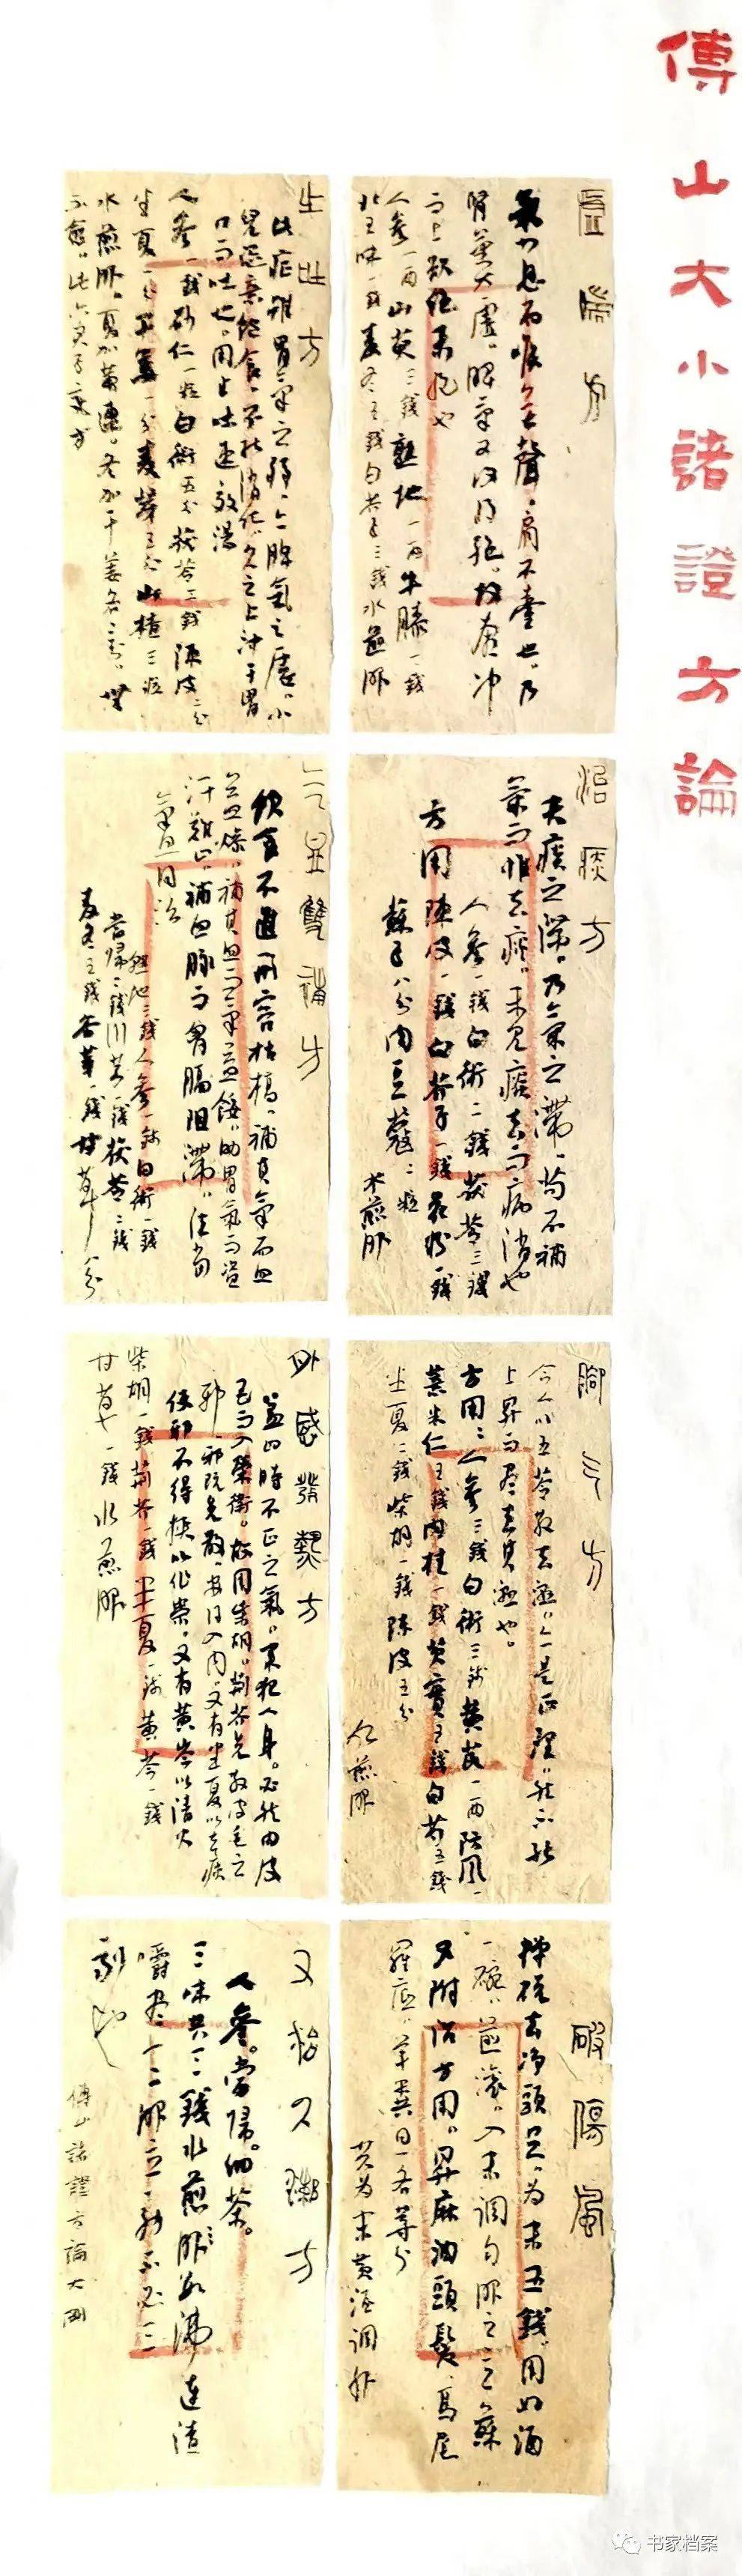 傅山大小諸證方論
虛喘方
氣少息而喉無聲，肩不擡也。乃
腎氣大虛，脾氣又復將絕，故奔沖
而上，欲絕未絕也
人參一兩山萸三錢熟地一兩牛膝一錢
北五味一錢麦冬五錢白芥子三錢水煎服
生吐方
此症雖胃氣之弱，亦脾氣之虛。小
兒恣棄飽食，不能消化，久之上沖于胃
口而吐也。用止吐速效湯
人參一錢砂仁一粒白術五分茯苓二錢陳皮二分
半夏一分干姜一分麦芽五分山楂三粒
水煎服。夏加黃連，冬加干姜各三分，無
不愈。
治痰方
夫痰之滯，乃氣之滯，苟不補
氣而惟去痰，未見痰去而病消也
人參一錢白術二錢茯苓三錢
方用陳皮一錢白芥子一錢花粉一錢
蘇子八分肉豆蔻二粒
水煎服
氣血雙補方
飲食不進，形容枯槁，補其氣而血
益燥，補其血而氣益餒，助胃氣而盜
汗難止，補血脉而胷膈阻滯，法當
氣血同治
熟地三錢人參一錢白術一錢
當歸二錢川芎一錢茯苓二錢
麦冬五錢谷芽一錢甘草八分
腳氣方
今人以五苓散去濕，亦是正理，然不能
上昇而盡去其濕也。
方用：人參三錢白術三錢黃芪一兩防風一
薏米仁五錢肉桂一錢芡實五錢白芍五錢
半夏二錢柴胡一錢陳皮五分
水煎服
外感發熱方
蓋四時不正之氣，來犯人身，必然由皮
毛而入榮衛。故用柴胡，荊芥先散皮毛之
邪，邪既先散，安得入內，又有半夏以去痰
使邪不得挾以作祟，又有黃芩以清火
柴胡一錢荊芥一錢半夏一錢黃芩一錢
甘草一錢水煎服
破傷風
蟬蛻去淨頭足，為末五錢，用好酒
一碗，煎滾，入末調勻服之立蘇
又附治方用，昇麻油頭髮，馬尾
羅底，羊糞，各等分
共为末黃酒調服
又治久瘧方
人參。當歸。細茶。
三味共三錢水煎服三沸連渣
嚼盡一二服立效不必三
劑也
傅山諸證方論大周
书家档案